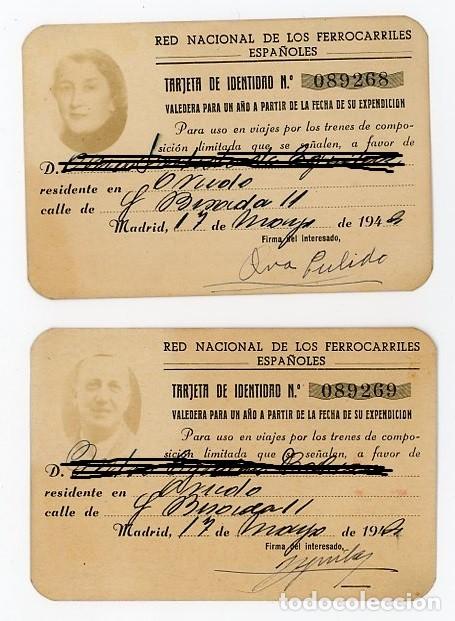 RED NACIONAL DE LOS FERROCARRILES
ESPAÑOLES
TARJETA DE IDENTIDAD N.º 089268
VALEDERA PARA UN AÑO A PARTIR DE LA FECHA DE SU EXPENDICION
Para uso en viajes por los trenes de compo-
sición limitada que se señalen, a favor de
D.
residente en Oviedo
calle de G Besada 11
Madrid, 17 de Mayo de 194
Firma del interesado,
Ava Pulido
RED NACIONAL DE LOS FERROCARRILES
ESPAÑOLES
TARJETA DE IDENTIDAD N.º 089269
VALEDERA PARA UN AÑO A PARTIR DE LA FECHA DE SU EXPENDICION
Para uso en viajes por los trenes de compo-
sición limitada que se señalen, a favor de
D.
residente en Oviedo
calle de G Besada 11
Madrid, 17 de Mayo de 194
Firma del interesado,
todocoleccion